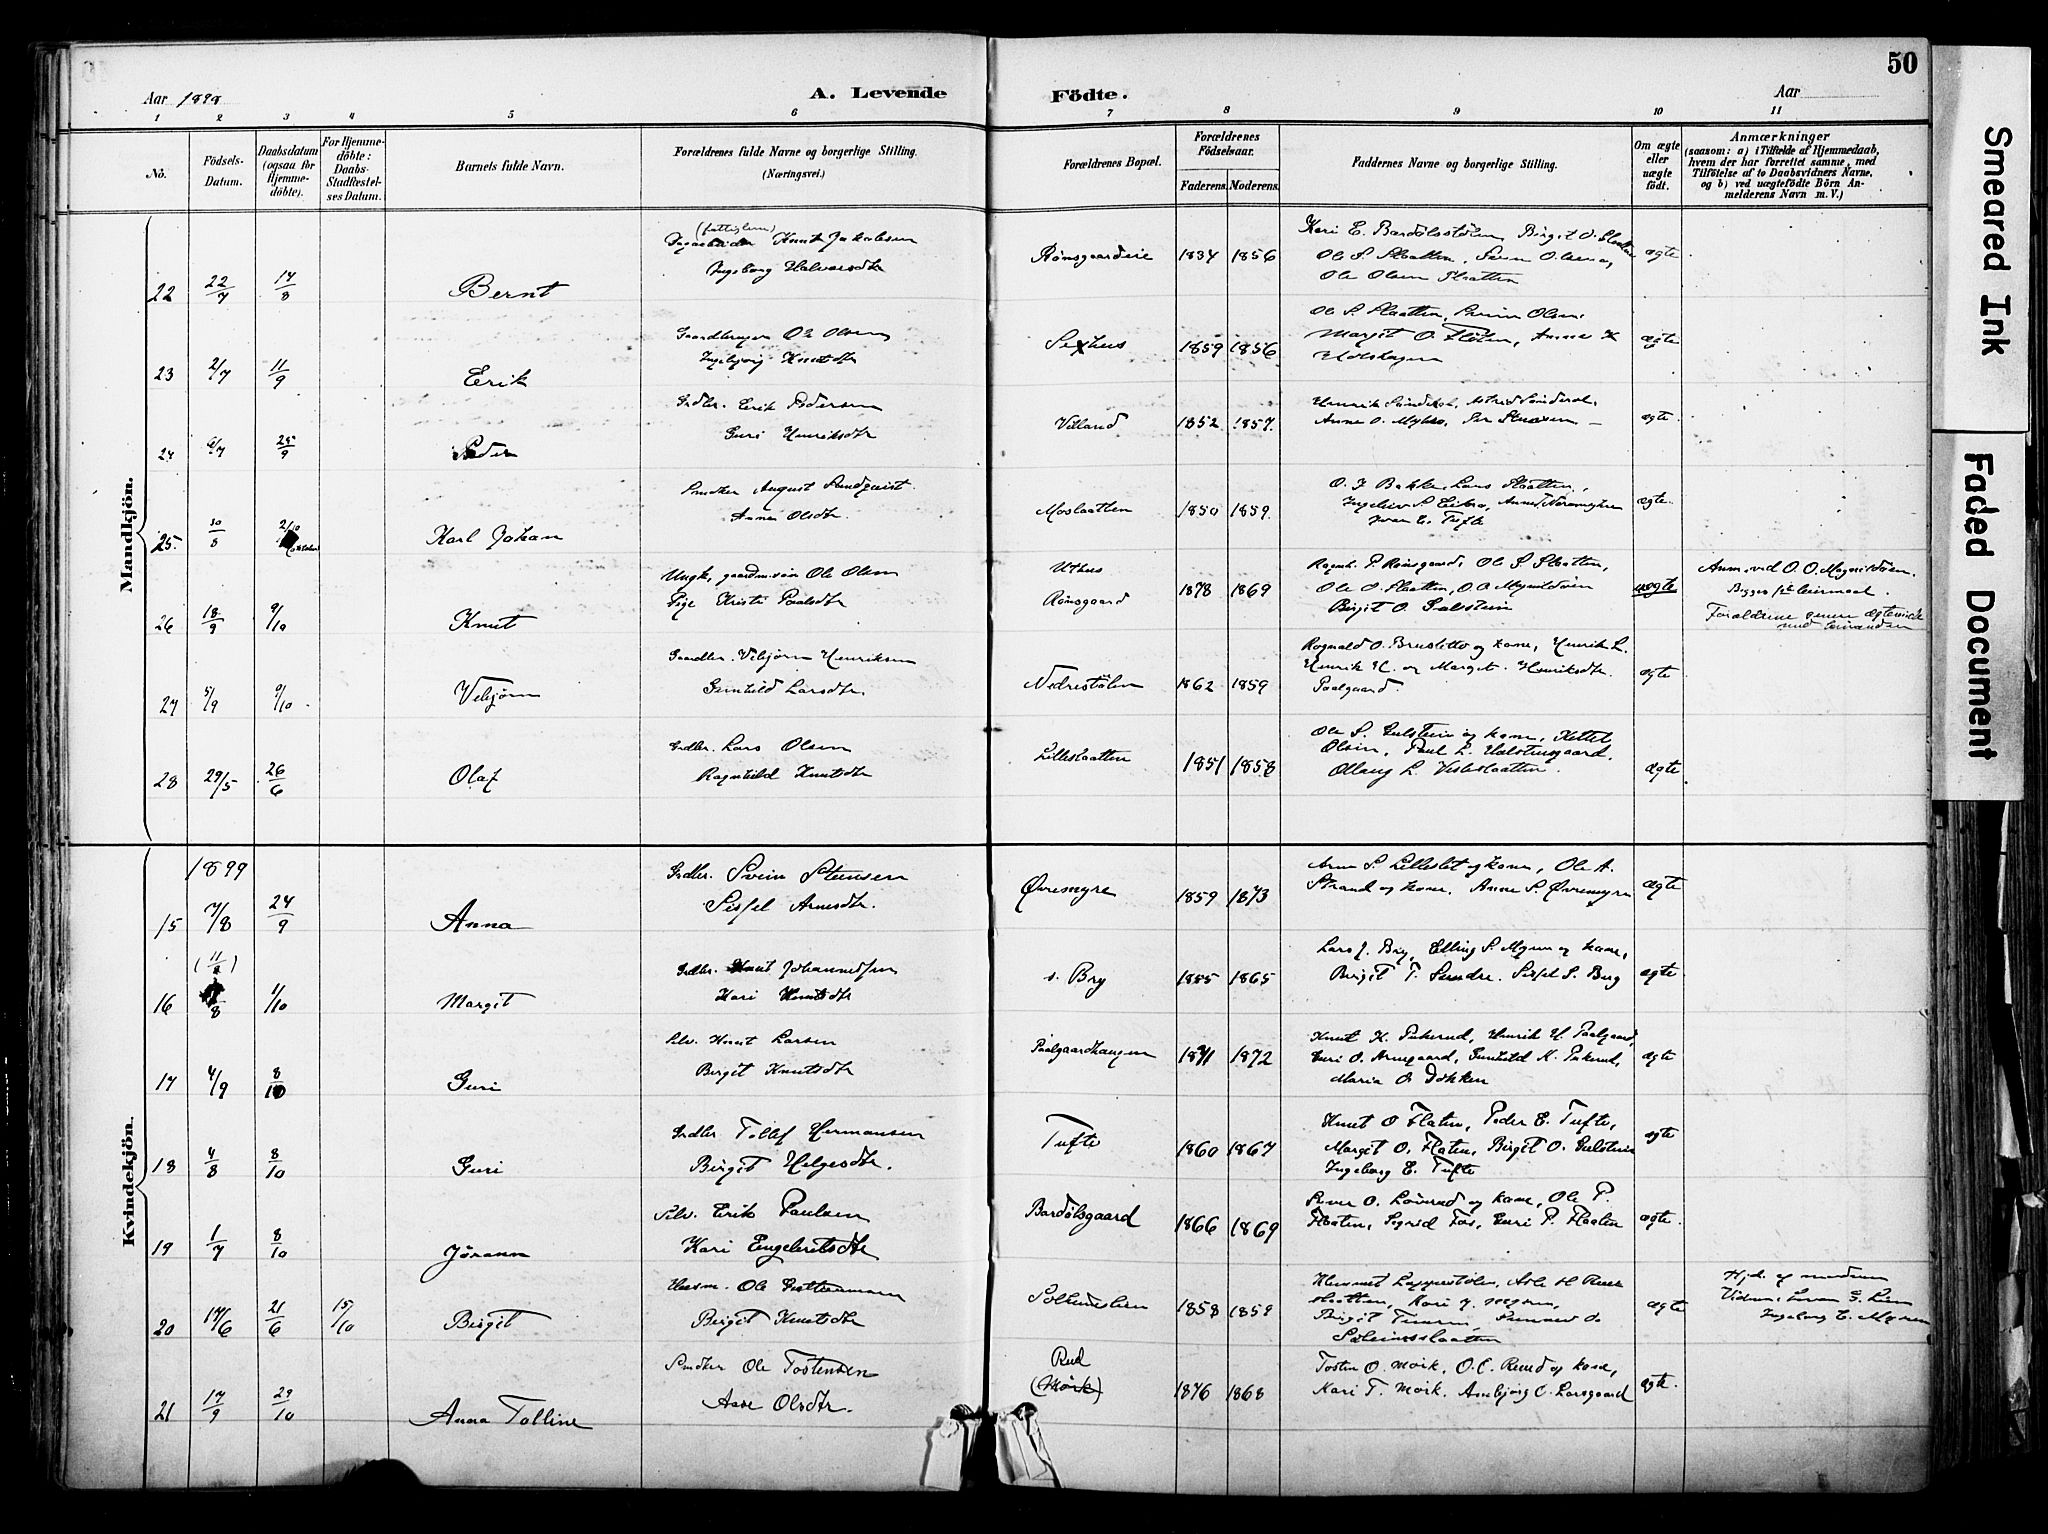 50
Aar 1898
A. Levende
Födte.
Aar
1 2 3 4 5 6 7 8 9 10 11
No.
Födsels-
Datum.
Daabsdatum
(ogsaa för
Hjemme-
döbte).
For Hjemme-
döbte:
Daabs-
Stadfæstel-
ses Datum.
Barnets fulde Navn.
Forældrenes fulde Navne og borgerlige Stilling.
(Næringsvei.)
Forældrenes Bopæl.
Forældrenes
Födselsaar.
Faderens.
Moderens.
Faddernes Navne og borgerlige Stilling.
Om ægte
eller
uægte
födt.
Anmærkninger
(saasom: a) i Tilfælde af Hjemmedaab,
hvem der har forrettet samme, med
Tilföielse af to Daabsvidners Navne,
og b) ved uægtefödte Börn An-
melderens Navn m. V.)
Mandkjön.
22 22/7 14/8 Bernt
Knut Jakobsen
Ingeborg Halvorsdtr
1834 1856
Kari E. Bardölsstölen, Birgit O. Slaatten
Ole S. Slaatten,
Ole Olsen Slaatten
ægte
23 2/7 11/9 Erik
Gaardbruger Ole Olsen
Ingebjørg Knutsdtr
1859 1856
Ole S. Slaatten, Svein Olsen,
Margit O. Flöten, Anne K
ægte
24 6/7 25/9 Peder
Grdbr. Erik Pedersen
Guri Henriksdtr
Villand 1852 1857
ægte
25. 30/8 2/10 Karl Johan
Smdkr August Sundquist
Anne Olsdtr.
Moslaatten 1850 1859
O. J. Bakke, Lars Slaatten,
E. Tufte
ægte.
26 18/9 9/10 Knut
Ungk, gaardm.søn Ole Olsen
Pige Kristi Paalsdtr
Uthus
Rimsgaard 1878 1869
P. Rimsgaard, Ole S. Slaatten,
Ole O. Slaatten, O. O. Myrildöien
Birgit O. Gulstein
uægte
Anm. ved O. O.
Begges 1ste leiermaal.
Forældrene senere ægteviede
med hinanden
27 5/9 9/10 Vebjørn
Gaardbr. Vebjørn Henriksen
Gunhild Larsdtr.
Nedrestölen 1862 1859
Ragnvald O. Brusletto og kone, Henrik L.
Henrik H. og Margit Henriksdtr.
Paalgaard.
ægte
28 29/5 26/6 Olaf
Grdbr. Lars Olsen
Ragnhild Knutsdtr
Lilleslaatten 1851 1858
Ole S. Gulstein og kone, Kettel
Olsen, Paul L.
Ollaug L. Vesleslaatten.
ægte
Kvindekjön.
1899
15 7/8 24/9 Anna
Grdbr. Svein Steensen
Sissel Arnesdtr.
Øvremyre 1859 1873
Arne S. Lilleslet og kone, Ole A.
Strand og kone, Anne S. Øvremyre
ægte
16 (11/8) /8 1/10 Margit
Grdbr. Knut Johannessen
Kari Knutsdtr
s. Bry 1855 1865
Lars J. Bry, Elling S. Myren og kone,
Birgit T. Sundre. Sissel S. Berg
ægte
17 4/9 8/10 Guri
Selv. Knut Larsen
Birgit Knutsdtr
Paalgaardhaugen 1871 1872
Knut K. Pukerud, Henrik H. Paalgaard,
Guri O. Arnegaard, Gunhild K. Pukerud,
Maria O Dokken
ægte
18 4/8 8/10 Guri
Grdbr Tollef Hermansen
Birgit Helgesdtr.
Tufte 1860 1867
Knut O Flaten, Peder E. Tufte,
Margit O. Flaten, Birgit O. Gulstein
Ingeborg E. Tufte
ægte
19 1/7 8/10 Jörann
Selv. Erik Paulsen
Kari Engebretsdtr
Bardölsgaard 1866 1869
O. Löverud og kone, Ole P.
Flaaten, Sigrid Fos, Guri P. Flaaten
ægte.
20 17/6 21/6 15/10 Birgit
Husm. Ole Guttormsen
Birgit Knutsdtr
1858 1859
Birgit
ægte
Hjd. af modren
Vidner
Ingeborg E. Myren
21 17/9 29/10 Anna Tolline
Smdkr Ole Tostensen
Aase Olsdtr.
Rud
(Mörk) 1876 1868
Tosten O. Mörk, O. C. Ruud og kone,
Kari T. Mörk. Asebjörg C. Larsgaard
ægte.
Smeared Ink
Faded Document